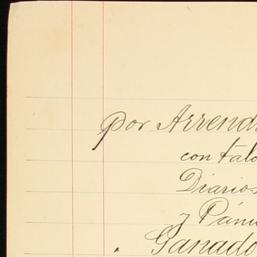 por Arrend
con tal
Diarios
y Pánu
Ganado